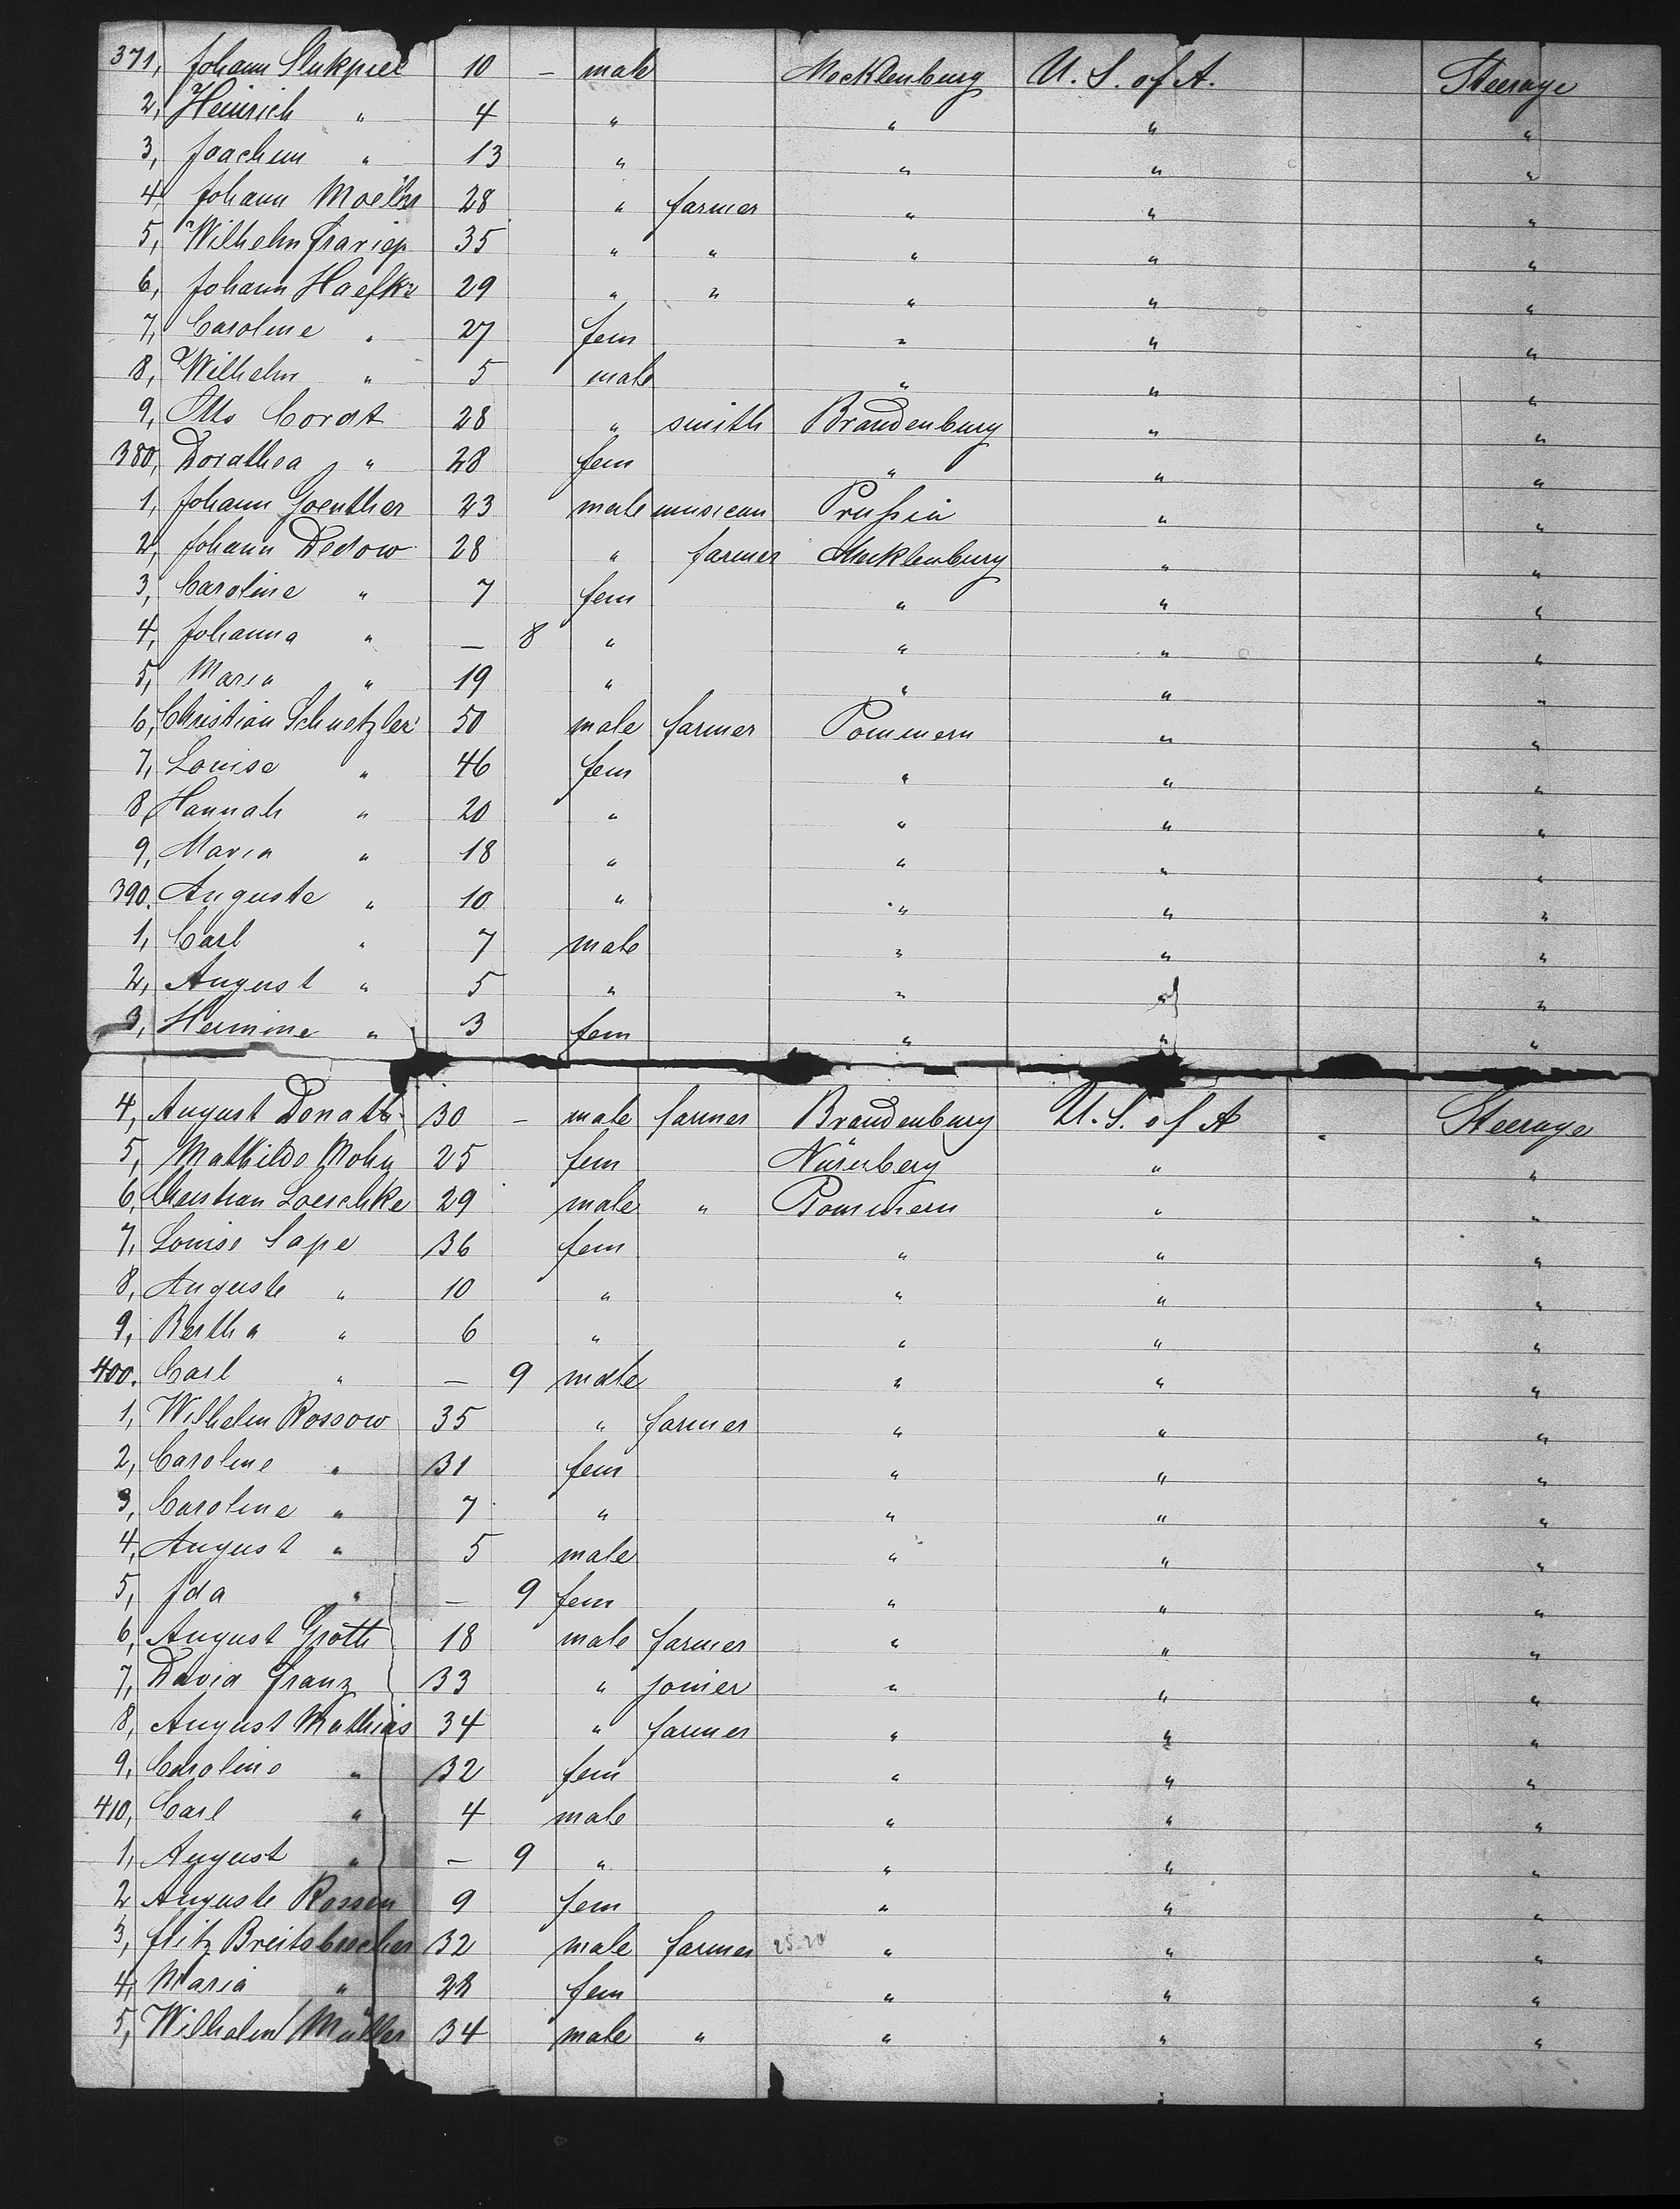 371, Johann Slukpiel 10 – male Mecklenburg U. S. of A. Steerage
2, Heinrich " 4 " " " "
3, Joachim " 13 " " " "
4, Johann Moeller 28 " farmer " " "
5, Wilhelm Frariep 35 " " " " "
6, Johann Haefke 29 " " " " "
7, Caroline " 27 fem " " "
8, Wilhelm " 5 male " " "
9, Otto Cordt 28 " smith Brandenburg " "
380, Dorathea " 28 fem " " "
1, Johann Goenther 23 male musican Prußia " "
2, Johann Dedow 28 " farmer Mecklenburg " "
3, Caroline " 7 fem " " "
4, Johanna " – 8 " " " "
5, Maria " 19 " " " "
6, Christian Schuetzler 50 male farmer Pommern " "
7, Louise " 46 fem " " "
8, Hannah " 20 " " " "
9, Maria " 18 " " " "
390. Auguste " 10 " " " "
1, Carl " 7 male " " "
2, August " 5 " " " "
3, Hermine " 3 fem " " "
4, August Donath 30 – male farmer Brandenburg U. S. of A Steerage
5, Mathilde Mohn 25 fem Nürnberg " "
6, Christian Loeschke 29 male " Pommern " "
7, Louise Sape 36 fem " " "
8, Auguste " 10 " " " "
9, Bertha " 6 " " " "
400. Carl " – 9 male " " "
1, Wilhelm Rossow 35 " farmer " " "
2, Caroline " 31 fem " " "
3, Caroline " 7 " " " "
4, August " 5 male " " "
5, Ida " – 9 fem " " "
6, August Groth 18 male farmer " " "
7, David Franz 33 " joiner " " "
8, August Mathias 34 " farmer " " "
9, Caroline " 32 fem " " "
410, Carl " 4 male " " "
1, August " – 9 " " " "
2 Auguste Rossow 9 fem " " "
3, Breitsbrecher 32 male farmer " " "
4, Maria " 28 fem " " "
5, Wilhelm Müller 34 male " " " "